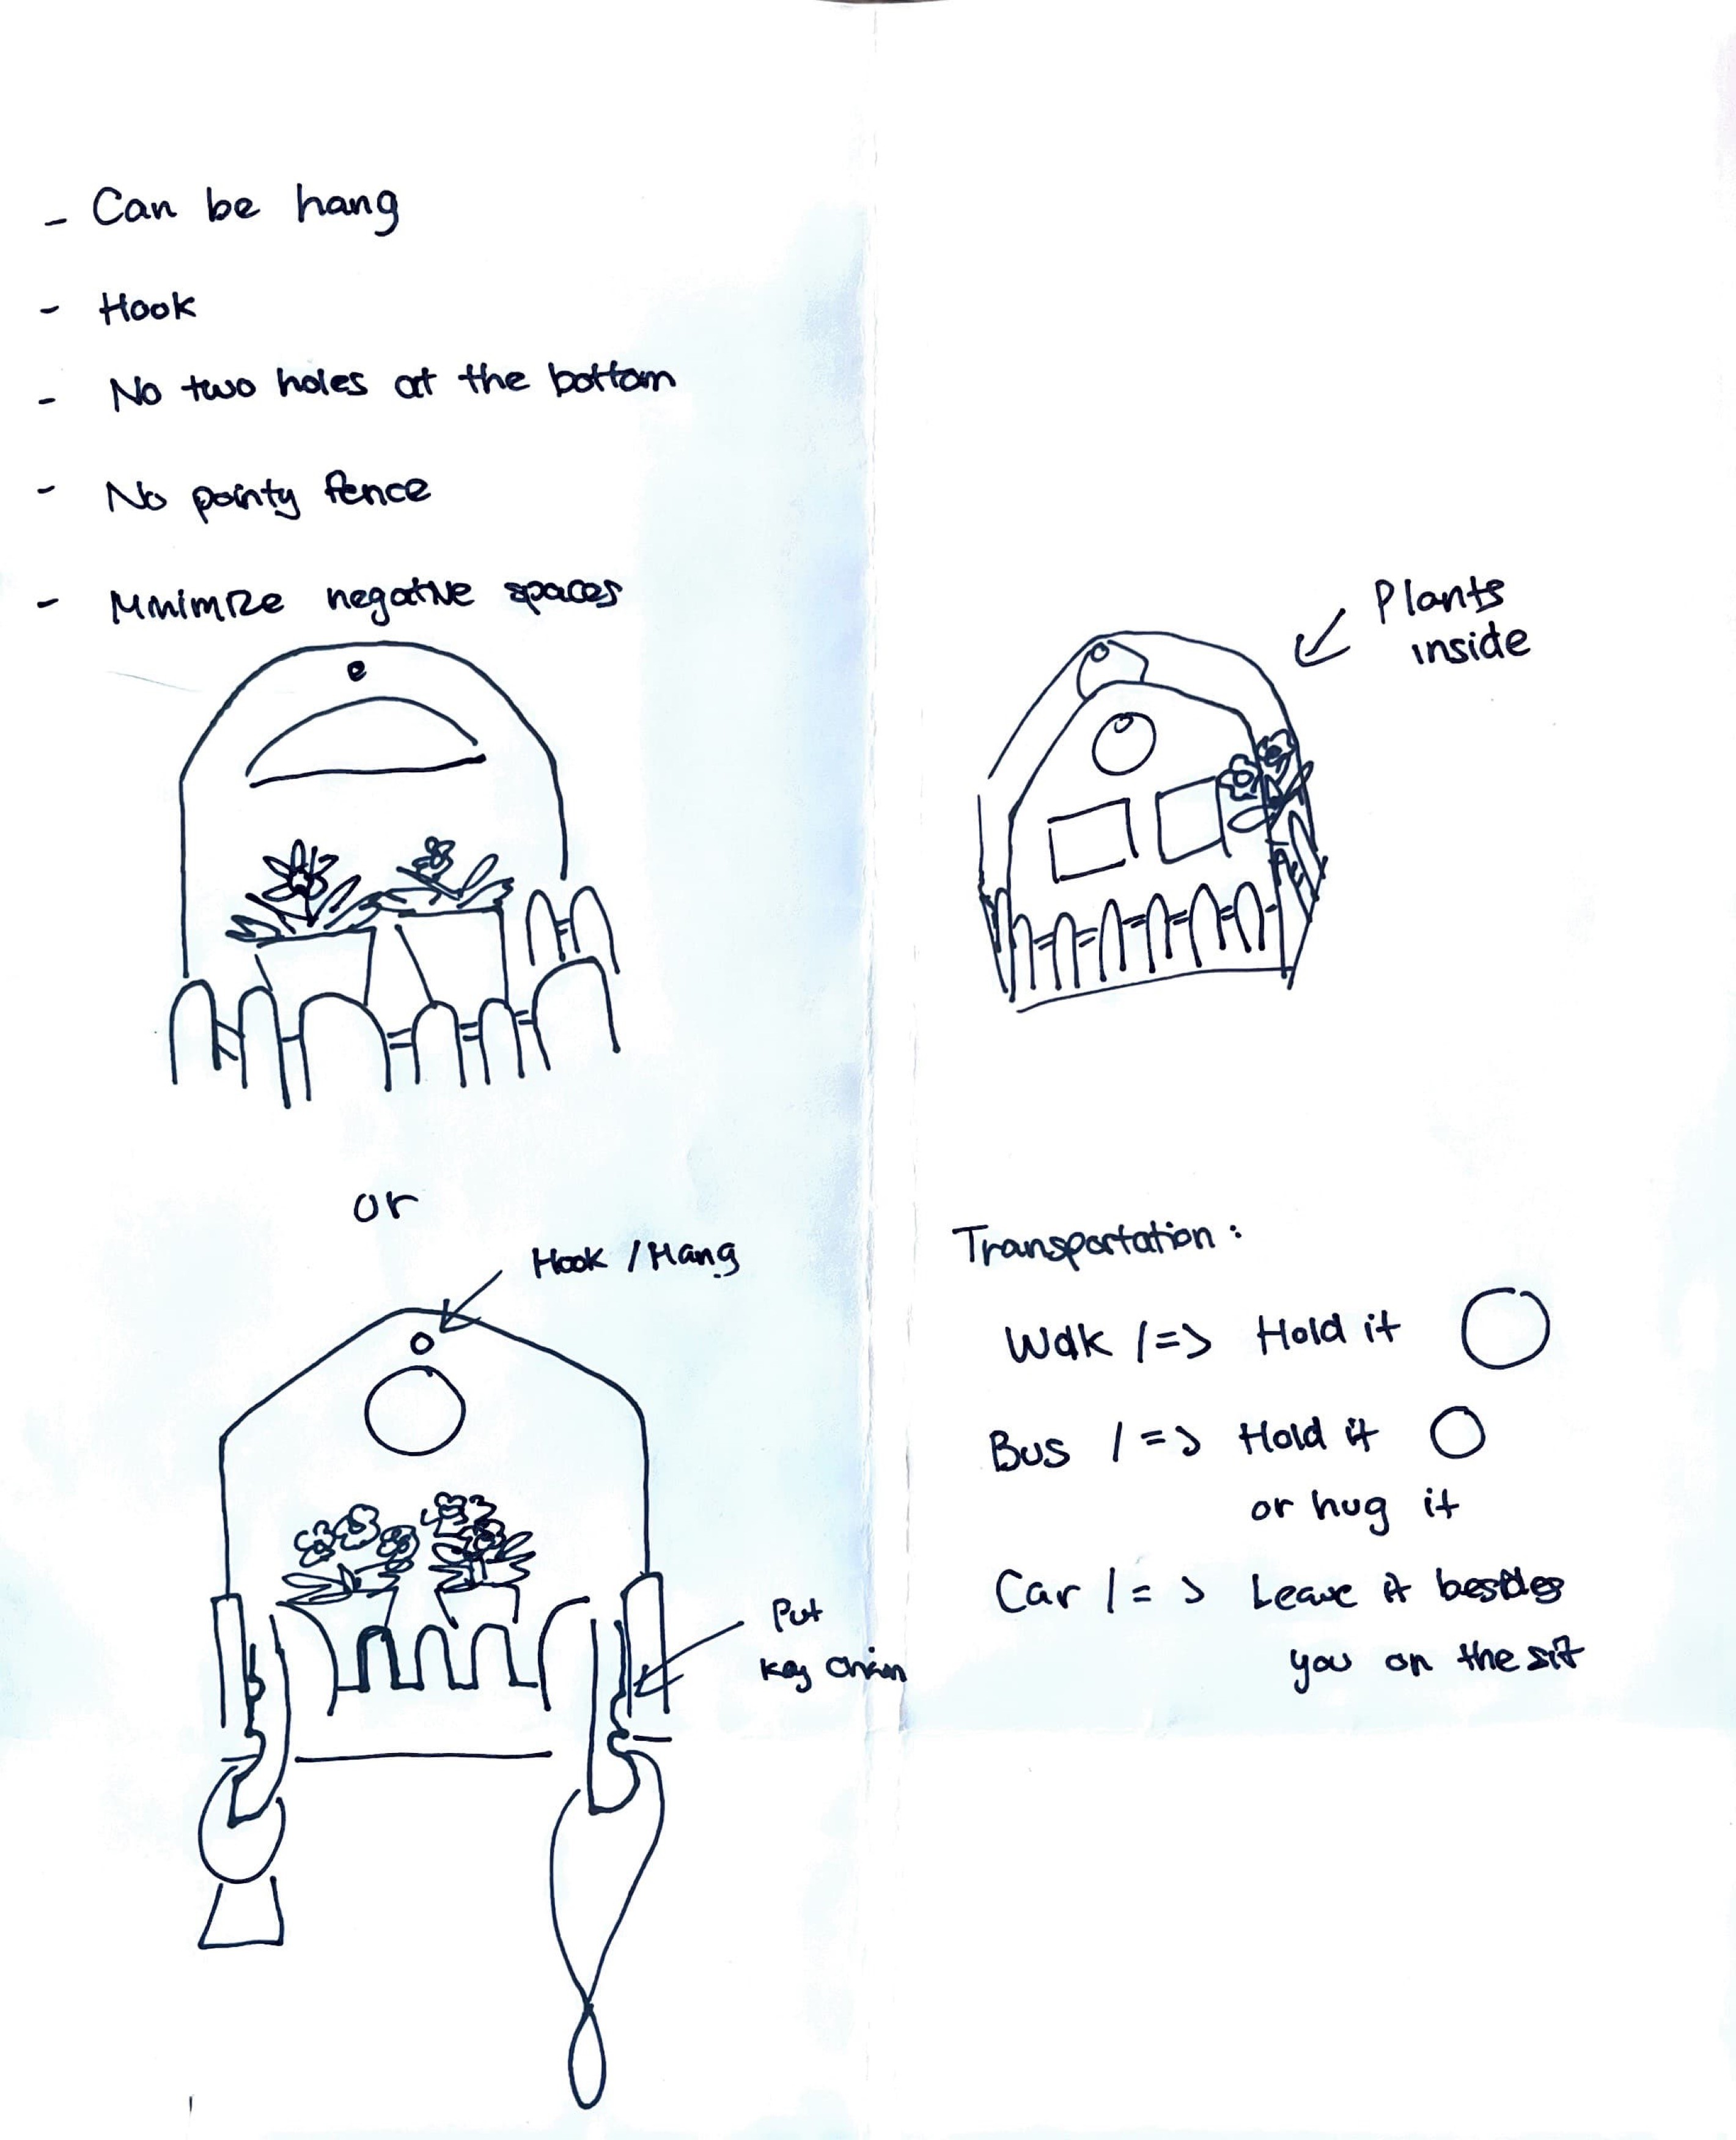 - Can be hang
- Hook
- No two holes at the bottom
- No pointy fence
- Minimize negative spaces
Plants
inside
or
Hook / Hang
Put
Key Chain
Transportation :
Walk /=> Hold it
Bus /=> Hold it
or hug it
Car /=> Leave it besides
you on the sit